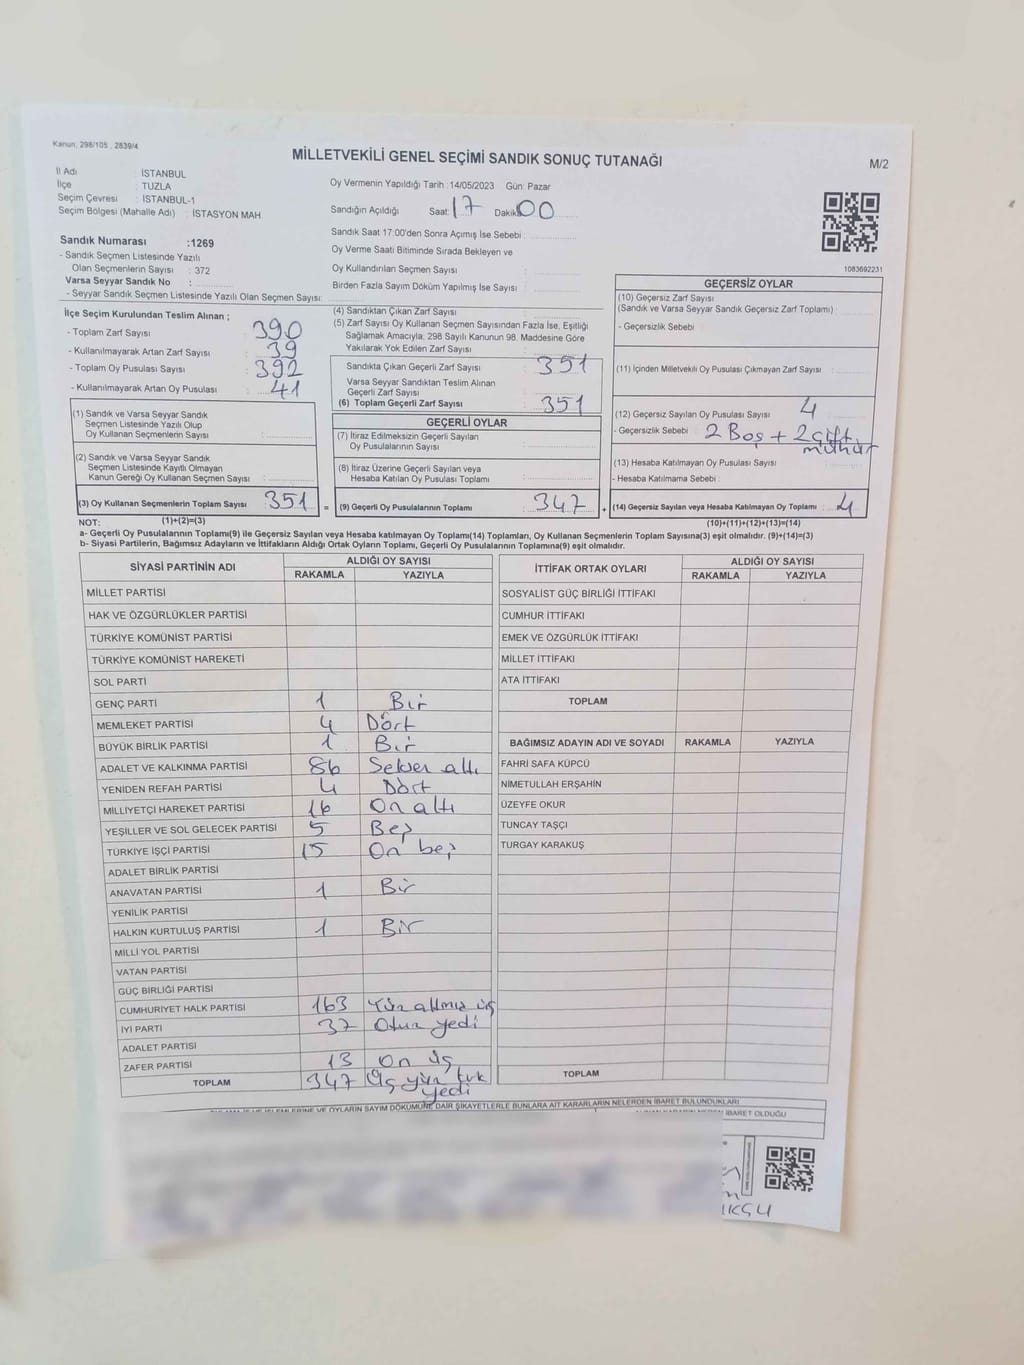 Kanun, 298/105 , 2839/4
MİLLETVEKİLİ GENEL SEÇİMİ SANDIK SONUÇ TUTANAĞI
M/2
İl Adı : İSTANBUL
İlçe : TUZLA
Seçim Çevresi : İSTANBUL-1
Seçim Bölgesi (Mahalle Adı) : İSTASYON MAH.
Oy Vermenin Yapıldığı Tarih :14/05/2023 Gün: Pazar
Sandığın Açıldığı Saat: 17 Dakika: 00
Sandık Saat 17:00'den Sonra Açımış İse Sebebi :
Oy Verme Saati Bitiminde Sırada Bekleyen ve
Oy Kullandırılan Seçmen Sayısı :
Birden Fazla Sayım Döküm Yapılmış İse Sayısı :
1083692231
Sandık Numarası :1269
- Sandık Seçmen Listesinde Yazılı
Olan Seçmenlerin Sayısı : 372
Varsa Seyyar Sandık No :
- Seyyar Sandık Seçmen Listesinde Yazılı Olan Seçmen Sayısı:
İlçe Seçim Kurulundan Teslim Alınan ;
- Toplam Zarf Sayısı : 390
- Kullanılmayarak Artan Zarf Sayısı : 39
- Toplam Oy Pusulası Sayısı : 392
- Kullanılmayarak Artan Oy Pusulası : 41
(1) Sandık ve Varsa Seyyar Sandık
Seçmen Listesinde Yazılı Olup
Oy Kullanan Seçmenlerin Sayısı :
(2) Sandık ve Varsa Seyyar Sandık
Seçmen Listesinde Kayıtlı Olmayan
Kanun Gereği Oy Kullanan Seçmen Sayısı :
(3) Oy Kullanan Seçmenlerin Toplam Sayısı : 351
(4) Sandıktan Çıkan Zarf Sayısı :
(5) Zarf Sayısı Oy Kullanan Seçmen Sayısından Fazla İse, Eşitliği
Sağlamak Amacıyla, 298 Sayılı Kanunun 98. Maddesine Göre
Yakılarak Yok Edilen Zarf Sayısı :
Sandıkta Çıkan Geçerli Zarf Sayısı : 351
Varsa Seyyar Sandıktan Teslim Alınan
Geçerli Zarf Sayısı :
(6) Toplam Geçerli Zarf Sayısı : 351
GEÇERLİ OYLAR
(7) İtiraz Edilmeksizin Geçerli Sayılan
Oy Pusulalarının Sayısı :
(8) İtiraz Üzerine Geçerli Sayılan veya
Hesaba Katılan Oy Pusulası Toplamı :
= (9) Geçerli Oy Pusulalarının Toplamı : 347 +
GEÇERSİZ OYLAR
(10) Geçersiz Zarf Sayısı
(Sandık ve Varsa Seyyar Sandık Geçersiz Zarf Toplamı) :
- Geçersizlik Sebebi :
(11) İçinden Milletvekili Oy Pusulası Çıkmayan Zarf Sayısı :
(12) Geçersiz Sayılan Oy Pusulası Sayısı : 4
- Geçersizlik Sebebi : 2 Boş + 2 çift mühür
(13) Hesaba Katılmayan Oy Pusulası Sayısı :
- Hesaba Katılmama Sebebi :
(14) Geçersiz Sayılan veya Hesaba Katılmayan Oy Toplamı : 4
NOT: (1)+(2)=(3)
(10)+(11)+(12)+(13)=(14)
a- Geçerli Oy Pusulalarının Toplamı(9) ile Geçersiz Sayılan veya Hesaba katılmayan Oy Toplamı(14) Toplamları, Oy Kullanan Seçmenlerin Toplam Sayısına(3) eşit olmalıdır. (9)+(14)=(3)
b- Siyasi Partilerin, Bağımsız Adayların ve İttifakların Aldığı Ortak Oyların Toplamı, Geçerli Oy Pusulalarının Toplamına(9) eşit olmalıdır.
SİYASİ PARTİNİN ADI ALDIĞI OY SAYISI
RAKAMLA YAZIYLA
MİLLET PARTİSİ
HAK VE ÖZGÜRLÜKLER PARTİSİ
TÜRKİYE KOMÜNİST PARTİSİ
TÜRKİYE KOMÜNİST HAREKETİ
SOL PARTİ
GENÇ PARTİ 1 Bir
MEMLEKET PARTİSİ 4 Dört
BÜYÜK BİRLİK PARTİSİ 1 Bir
ADALET VE KALKINMA PARTİSİ 86 Seksen altı
YENİDEN REFAH PARTİSİ 4 Dört
MİLLİYETÇİ HAREKET PARTİSİ 16 On altı
YEŞİLLER VE SOL GELECEK PARTİSİ 5 Beş
TÜRKİYE İŞÇİ PARTİSİ 15 On beş
ADALET BİRLİK PARTİSİ
ANAVATAN PARTİSİ 1 Bir
YENİLİK PARTİSİ
HALKIN KURTULUŞ PARTİSİ 1 Bir
MİLLİ YOL PARTİSİ
VATAN PARTİSİ
GÜÇ BİRLİĞİ PARTİSİ
CUMHURİYET HALK PARTİSİ 163 Yüz altmış üç
İYİ PARTİ 37 Otuz yedi
ADALET PARTİSİ
ZAFER PARTİSİ 13 On üç
TOPLAM 347 Üç yüz kırk yedi
İTTİFAK ORTAK OYLARI ALDIĞI OY SAYISI
RAKAMLA YAZIYLA
SOSYALİST GÜÇ BİRLİĞİ İTTİFAKI
CUMHUR İTTİFAKI
EMEK VE ÖZGÜRLÜK İTTİFAKI
MİLLET İTTİFAKI
ATA İTTİFAKI
TOPLAM
BAĞIMSIZ ADAYIN ADI VE SOYADI RAKAMLA YAZIYLA
FAHRİ SAFA KÜPCÜ
NİMETULLAH ERŞAHİN
ÜZEYFE OKUR
TUNCAY TAŞÇI
TURGAY KARAKUŞ
TOPLAM
VE OYLARIN SAYIM DÖKÜMÜNE DAİR ŞİKAYETLERLE BUNLARA AİT KARARLARIN NELERDEN İBARET BULUNDUKLARI
İBARET OLDUĞU